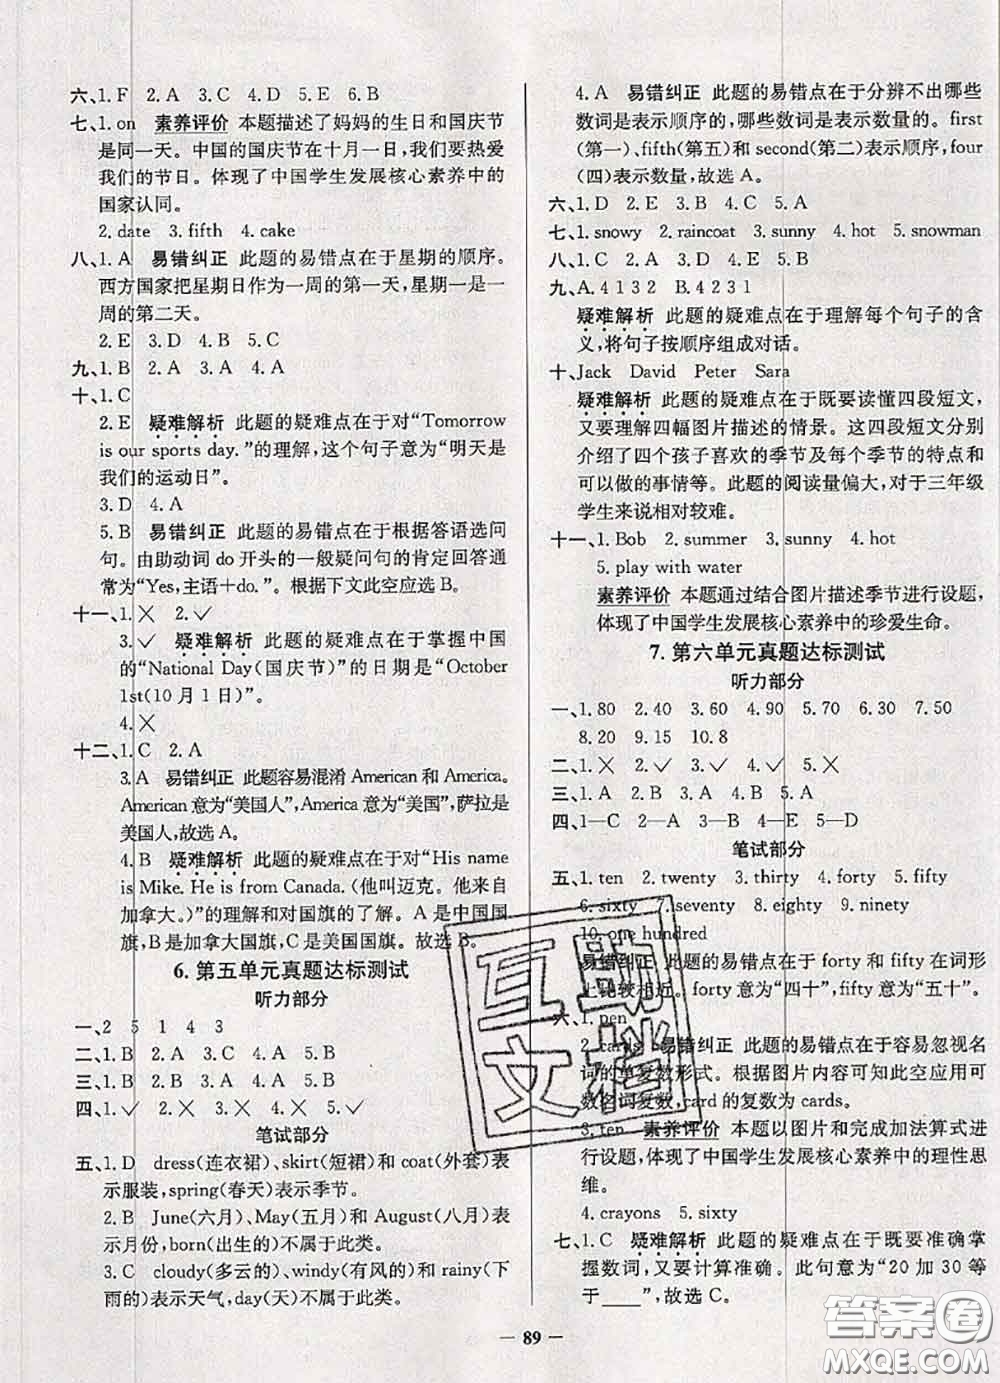 六、1. F 2. A 3. C 4. D 5. E 6. B
七、1. on 素养评价 本题描述了妈妈的生日和国庆节
是同一天。中国的国庆节在十月一日,我们要热爱
我们的节日。体现了中国学生发展核心素养中的
国家认同。
2. date 3. fifth 4. cake
八、1. A 易错纠正 此题的易错点在于星期的顺序。
西方国家把星期日作为一周的第一天,星期一是一
周的第二天。
2. E 3. D 4. C 5. B
九、1. B 2. A 3. A 4. A
十、1. C
2. E 疑难解析 此题的疑难点在于对“Tomorrow
is our sports day.”的理解,这个句子意为“明天是
我们的运动日”。
3. D 4. A
5. B 易错纠正 此题的易错点在于根据答语选问
句。由助动词 do 开头的一般疑问句的肯定回答通
常为“Yes,主语+do.”。根据下文此空应选 B。
十一、1. ✕ 2. ✓
3. ✓ 疑难解析 此题的疑难点在于掌握中国
的“National Day(国庆节)”的日期是“October
1st(10 月 1 日)”。
4. ✕
十二、1. C 2. A
3. A 易错纠正 此题容易混淆 American 和 America。
American 意为“美国人”,America 意为“美国”,萨拉是
美国人,故选 A。
4. B 疑难解析 此题的疑难点在于对“His name
is Mike. He is from Canada. (他叫迈克。他来自
加拿大。)”的理解和对国旗的了解。A 是中国国
旗,B 是加拿大国旗,C 是美国国旗。故选 B。
6. 第五单元真题达标测试
听力部分
一、2 5 1 4 3
二、1. B 2. A 3. A 4. A 5. B
三、1. B 2. A 3. B 4. A 5. B
四、1. ✓ 2. ✕ 3. ✕ 4. ✕ 5. ✓
笔试部分
五、1. D dress(连衣裙)、skirt(短裙)和 coat(外套)表
示服装,spring(春天)表示季节。
2. B June(六月)、May(五月)和 August(八月)表
示月份,born(出生的)不属于此类。
3. C cloudy(多云的)、windy(有风的)和 rainy(下
雨的)表示天气,day(天)不属于此类。
4. A 易错纠正 此题的易错点在于分辨不出哪些
数词是表示顺序的,哪些数词是表示数量的。first
(第一)、fifth(第五)和 second(第二)表示顺序,four
(四)表示数量,故选 A。
六、1. D 2. E 3. B 4. C 5. A
七、1. snowy 2. raincoat 3. sunny 4. hot 5. snowman
八、1. C 2. A 3. D 4. E 5. B
九、A. 4 1 3 2 B. 4 2 3 1
疑难解析 此题的疑难点在于理解每个句子的含
义,将句子按顺序组成对话。
十、Jack David Peter Sara
疑难解析 此题的疑难点在于既要读懂四段短文,
又要理解四幅图片描述的情景。这四段短文分别
介绍了四个孩子喜欢的季节及每个季节的特点和
可以做的事情等。此题的阅读量偏大,对于三年级
学生来说相对较难。
十一、1. Bob 2. summer 3. sunny 4. hot
5. play with water
素养评价 本题通过结合图片描述季节进行设题,
体现了中国学生发展核心素养中的珍爱生命。
7. 第六单元真题达标测试
听力部分
一、1. 80 2. 40 3. 60 4. 90 5. 70 6. 30 7. 50
8. 20 9. 15 10. 8
二、1. ✕ 2. ✓ 3. ✓ 4. ✓ 5. ✕
三、1. A 2. B 3. B 4. B 5. A
四、1—C 2—A 3—B 4—E 5—D
笔试部分
五、1. ten 2. twenty 3. thirty 4. forty 5. fifty
6. sixty 7. seventy 8. eighty 9. ninety
10. one hundred
易错纠正 此题的易错点在于 forty 和 fifty 在词形
上比较相近。forty 意为“四十”,fifty 意为“五十”。
六、1. pen
2. cards 易错纠正 此题的易错点在于容易忽视名
词的单复数形式。根据图片内容可知此空应用可
数名词复数,card 的复数为 cards。
3. ten 素养评价 本题以图片和完成加法算式进
行设题,体现了中国学生发展核心素养中的理性思
维。
4. crayons 5. sixty
七、1. C 疑难解析 此题的疑难点在于既要准确掌
握数词,又要计算准确。此句意为“20 加 30 等
于____”,故选 C。
— 89 —
互助文档
答案卷
MXQE.COM